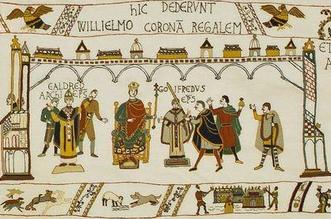 hIC DEDERVNT
WILLIELMO CORONA REGALEM
EALDRED
ARChIEPS
GOIFREDVS
EPS